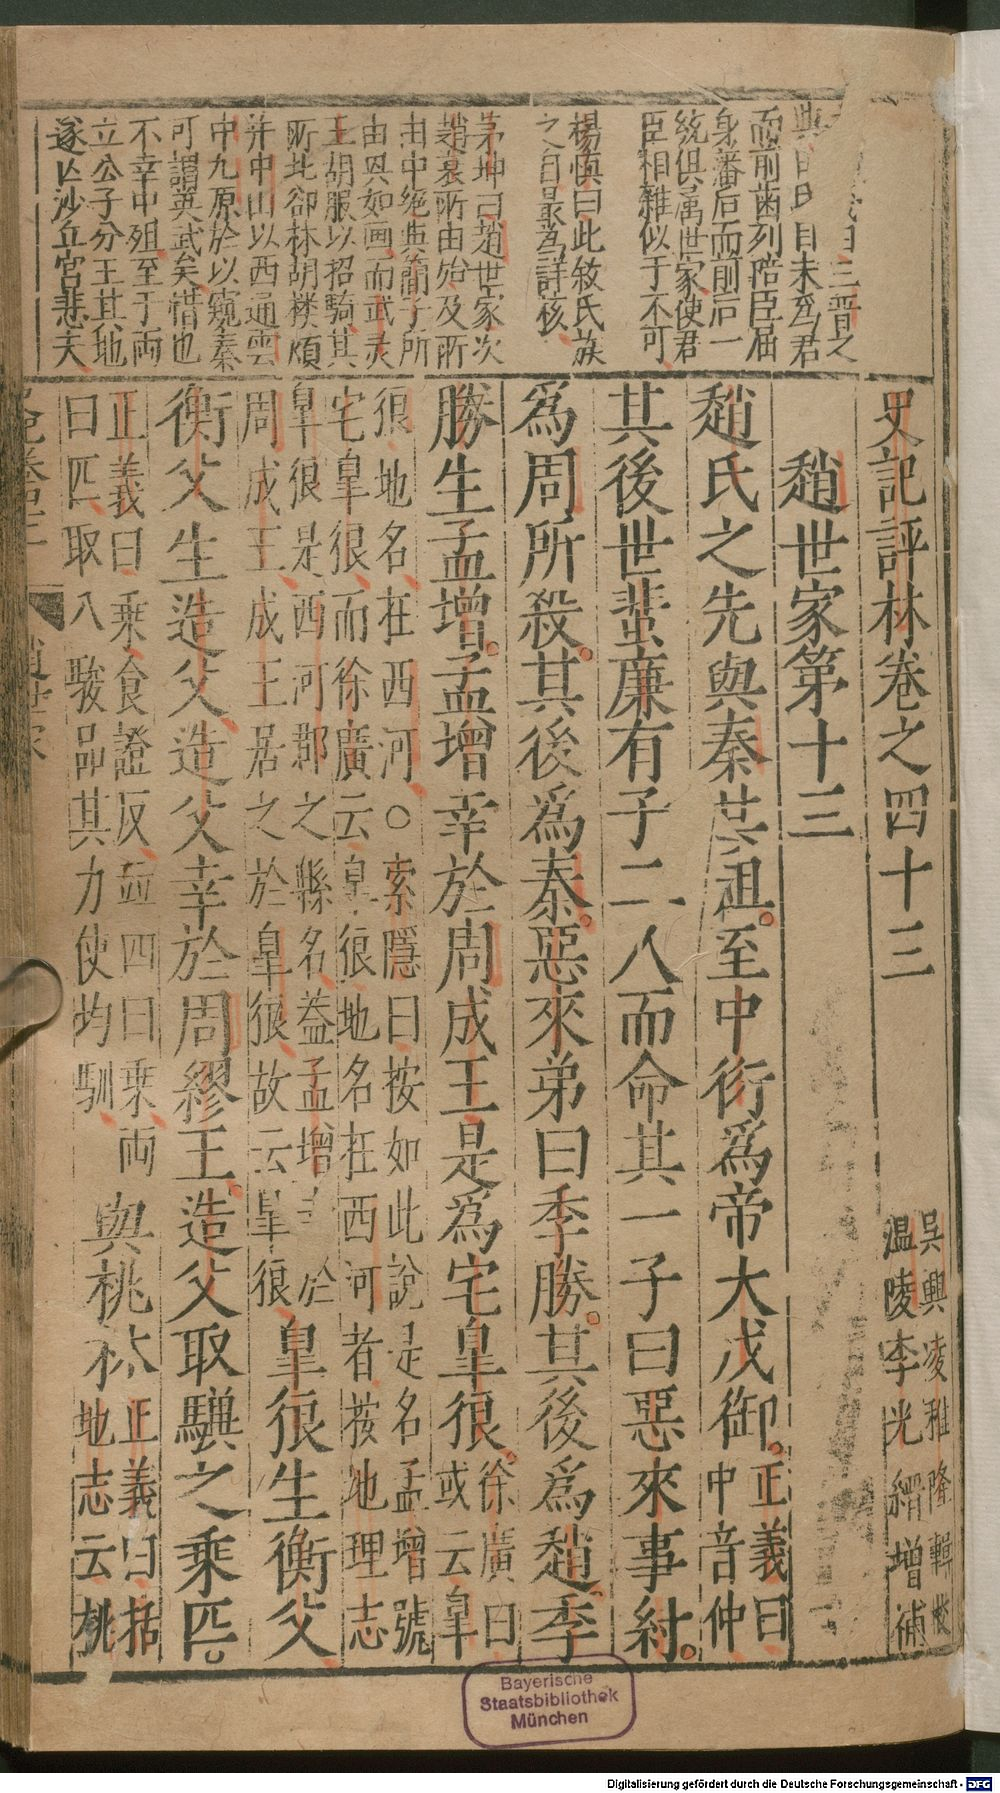 史記評林卷之四十三
吳興凌稚隆輯校
温陵李光縉增補
趙世家第十三
趙氏之先與秦共祖至中衍爲帝大戊御正義曰
中音仲
其後世蜚廉有子二人而命其一子曰惡來事紂
爲周所殺其後爲秦惡來弟曰季勝其後爲趙季
勝生孟增孟增幸於周成王是爲宅皐狼徐廣曰
或云皐
狼地名在西河○索隱曰按如此說是名孟增號
宅皐狼而徐廣云皐狼地名在西河者按地理志
皐狼是西河郡之縣名蓋孟增幸於
周成王成王居之於皐狼故云皐狼
皐狼生衡父
衡父生造父造父幸於周繆王造父取驥之乘匹
正義曰乘食證反並四曰乘兩
曰匹取八駿品其力使均馴
與桃林正義曰括
地志云桃
三晋之
與 目未爲君
而前齒列陪臣届
身藩后而前后一
統俱属世家使君
臣相雜似于不可
楊慎曰此敘氏族
之自最爲詳核
茅坤曰趙世家次
趙衰所由始及所
由中絶與簡子所
由興如画而武灵
王胡服以招騎其
所北卻林胡樓煩
并中山以西通雲
中九原於以窺秦
可謂英武矣惜也
不幸中殂至于両
立公子分王其地
遂亡沙丘宮悲夫
趙世家
Bayerische
Staatsbibliothek
München
Digitalisierung gefördert durch die Deutsche Forschungsgemeinschaft - DFG